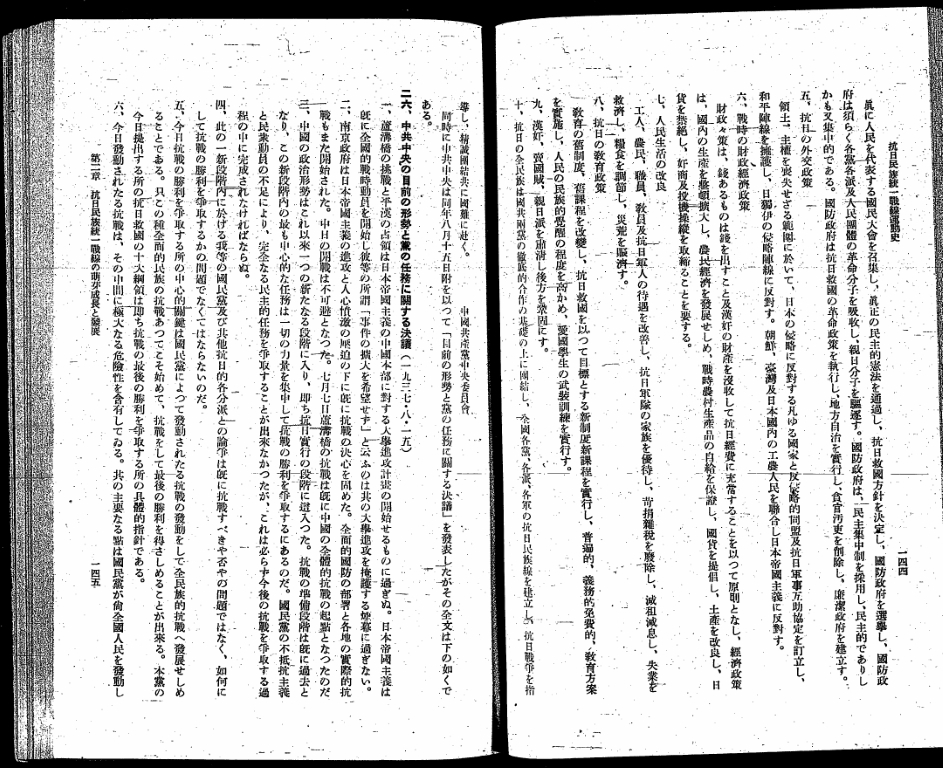 抗日民族統一戰線運動史
一四四
眞に人民を代表する國民大會を召集し、眞正の民主的憲法を通過し、抗日救國方針を決定し、國防政府を選擧し、國防政
府は須らく各黨各派及人民團體の革命分子を吸收し、親日分子を驅逐す。國防政府は、民主集中制を採用し、民主的でありし
かも又集中的である。國防政府は抗日救國の革命政策を執行し、地方自治を實行し、貪官汚吏を削除し、廉潔政府を建立す。
五、抗日の外交政策
領土、主權を喪失せざる範圍に於いて、日本の侵略に反對する凡ゆる國家と反侵略的同盟及抗日軍事互助協定を訂立し、
和平陣線を擁護し、日獨伊の侵略陣線に反對す。朝鮮、臺灣及日本國內の工農人民を聯合し日本帝國主義に反對す。
六、戰時の財政經濟政策
財政々策は、錢あるものは錢を出すこと及漢奸の財產を沒收して抗日經費に充當することを以つて原則となし、經濟政策
は、國內の生產を整頓擴大し、農民經濟を發展せしめ、戰時農村生產品の自給を保證し、國貨を提倡し、土產を改良し、日
貨を拒絕し、奸商及投機操縱を取締ることを要する。
七、人民生活の改良
工人、農民、職員、敎員及抗日軍人の待遇を改善し、抗日軍隊の家族を優待し、苛捐雜稅を廢除し、減租減息し、失業を
救濟し、糧食を調節し、災荒を賑濟す。
八、抗日の敎育政策
敎育の舊制度、舊課程を改變し、抗日救國を以つて目標とする新制度新課程を實行し、普遍的、義務的免費的、敎育方案
を實施し、人民の民族的覺醒の程度を高かめ、愛國學生の武裝訓練を實行す。
九、漢奸、賣國賊、親日派を肅淸し後方を鞏固にす。
十、抗日の全民族は國共兩黨の徹底的合作の基礎の上に團結し、全國各黨、各派、各軍の抗日民族線を建立し、抗日戰爭を指
導し、精誠團結共に國難に赴く。
中國共產黨中央委員會
同時に中共中央は同年八月十五日附を以つて「目前の形勢と黨の任務に關する決議」を發表したがその全文は下の如くで
ある。
二六、中共中央の目前の形勢と黨の任務に關する決議(一九三七・八・一五)
一、蘆溝橋の挑戰と平漢の占領は日本帝國主義の中國本部に對する大擧進攻計畫の開始せるものに過ぎぬ。日本帝國主義は
旣に全國的戰時動員を開始し彼等の所謂「事件の擴大を希望せず」と云ふのは其の大擧進攻を掩護する煙幕に過ぎない。
二、南京政府は日本帝國主義の進攻と人心憤激の壓迫の下に旣に抗戰の決心を固めた。全面的國防の部署と各地の實際的抗
戰もまた開始された。中日の開戰は不可避となつた。七月七日蘆溝橋の抗戰は旣に中國の全體的抗戰の起點となつたのだ
三、中國の政治形勢はこれ以來一つの新たなる段階に入り、卽ち抗日實行の段階に進入つた。抗戰の準備段階は旣に過去と
なり、この新段階內の最も中心的な任務は一切の力量を集中して抗戰の勝利を爭取するにあるのだ。國民黨の不抵抗主義
と民衆動員の不足により、完全なる民主的任務を爭取することが出來なかつたが、これは必らず今後の抗戰を爭取する過
程の中に完成されなければならぬ。
四、此の一新段階內に於ける我等の國民黨及び其他抗日的各分派との論爭は旣に抗戰すべきや否やの問題ではなく、如何に
して抗戰の勝利を爭取するかの問題でなくてはならないのだ。
五、今日抗戰の勝利を爭取する所の中心的關鍵は國民黨によつて發動されたる抗戰の發動をして全民族的抗戰へ發展せしめ
ることである。只この種全面的民族的抗戰あつてこそ始めて、抗戰をして最後の勝利を得さしめることが出來る。本黨の
今日提出する所の抗日救國の十大綱領は卽ち抗戰の最後の勝利を爭取する所の具體的指針である。
六、今日發動されたる抗戰は、その中間に極大なる危險性を含有してゐる。其の主要なる點は國民黨が尙全國人民を發動し
第二章 抗日民族統一戰線の萌芽成長と發展
一四五